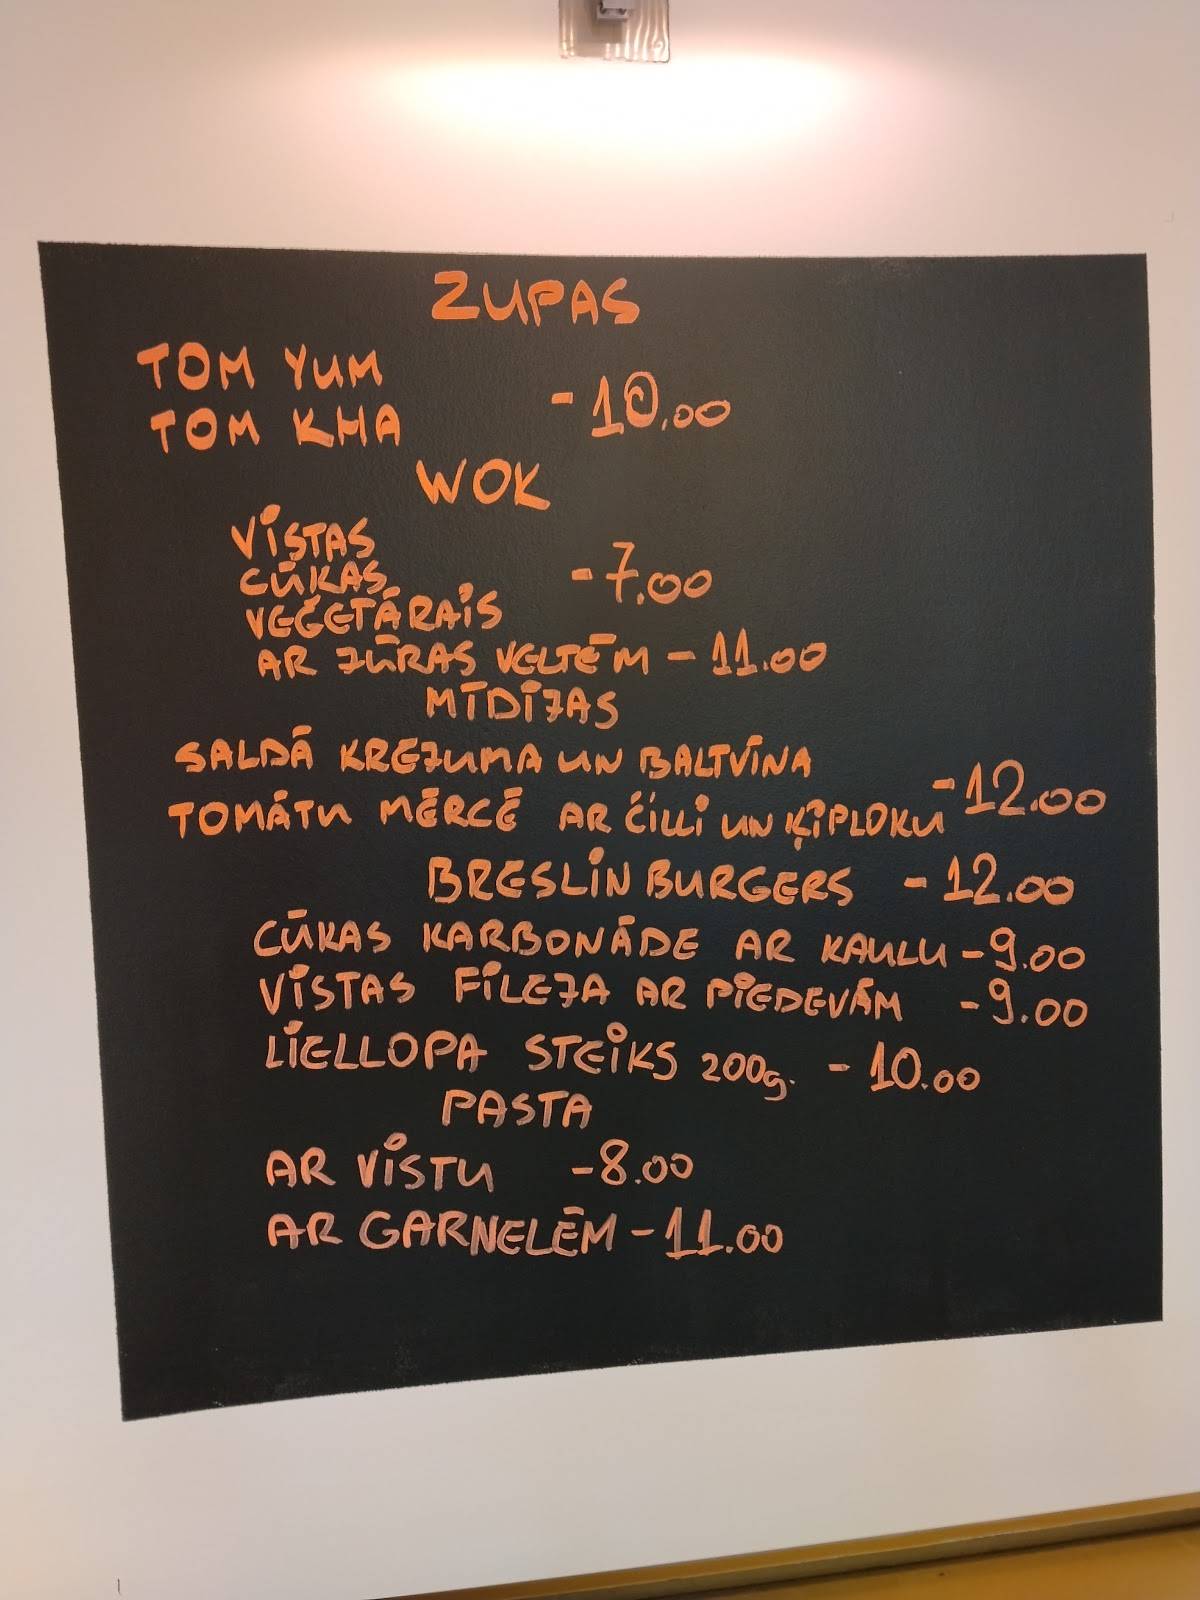 ZUPAS
TOM YUM
TOM KHA -10.00
WOK
VISTAS
CŪKAS -7.00
VEĢETĀRAIS
AR JŪRAS VELTĒM - 11.00
MĪDIJAS
SALDĀ KREJUMA UN BALTVĪNA
TOMĀTU MĒRCĒ AR ČILLI UN ĶIPLOKU -12.00
BRESLIN BURGERS - 12.00
CŪKAS KARBONĀDE AR KAULU - 9.00
VISTAS FILEJA AR PIEDEVĀM - 9.00
LIELLOPA STEIKS 200g. - 10.00
PASTA
AR VISTU -8.00
AR GARNELĒM - 11.00